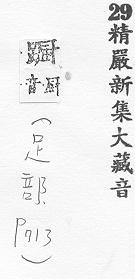 29精嚴新集大藏音
音厨
(足部
P713)